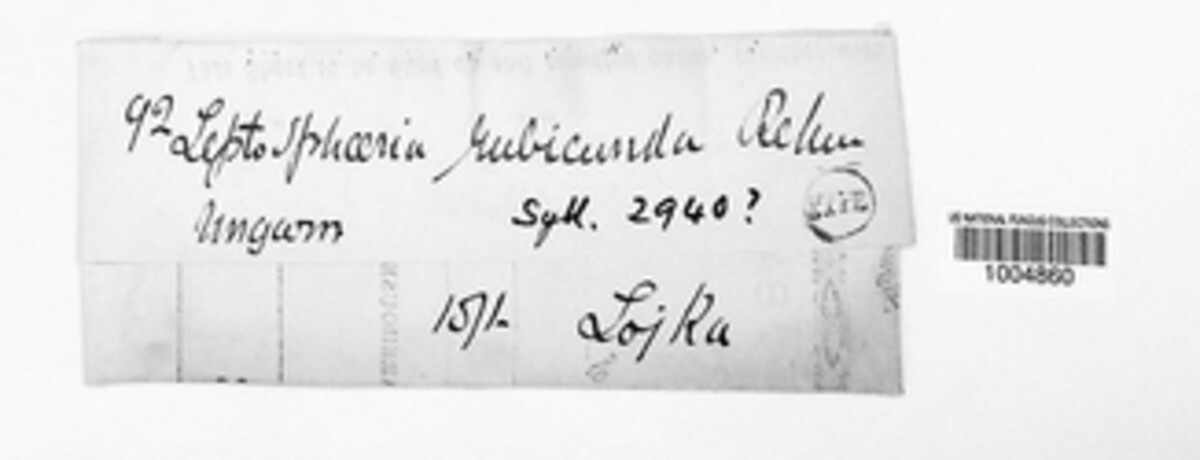 92 Leptosphæria rubicunda Rehm
Ungarn
Syll. 2940?
15/1.
Lojka
US NATIONAL FUNGUS COLLECTIONS
1004860